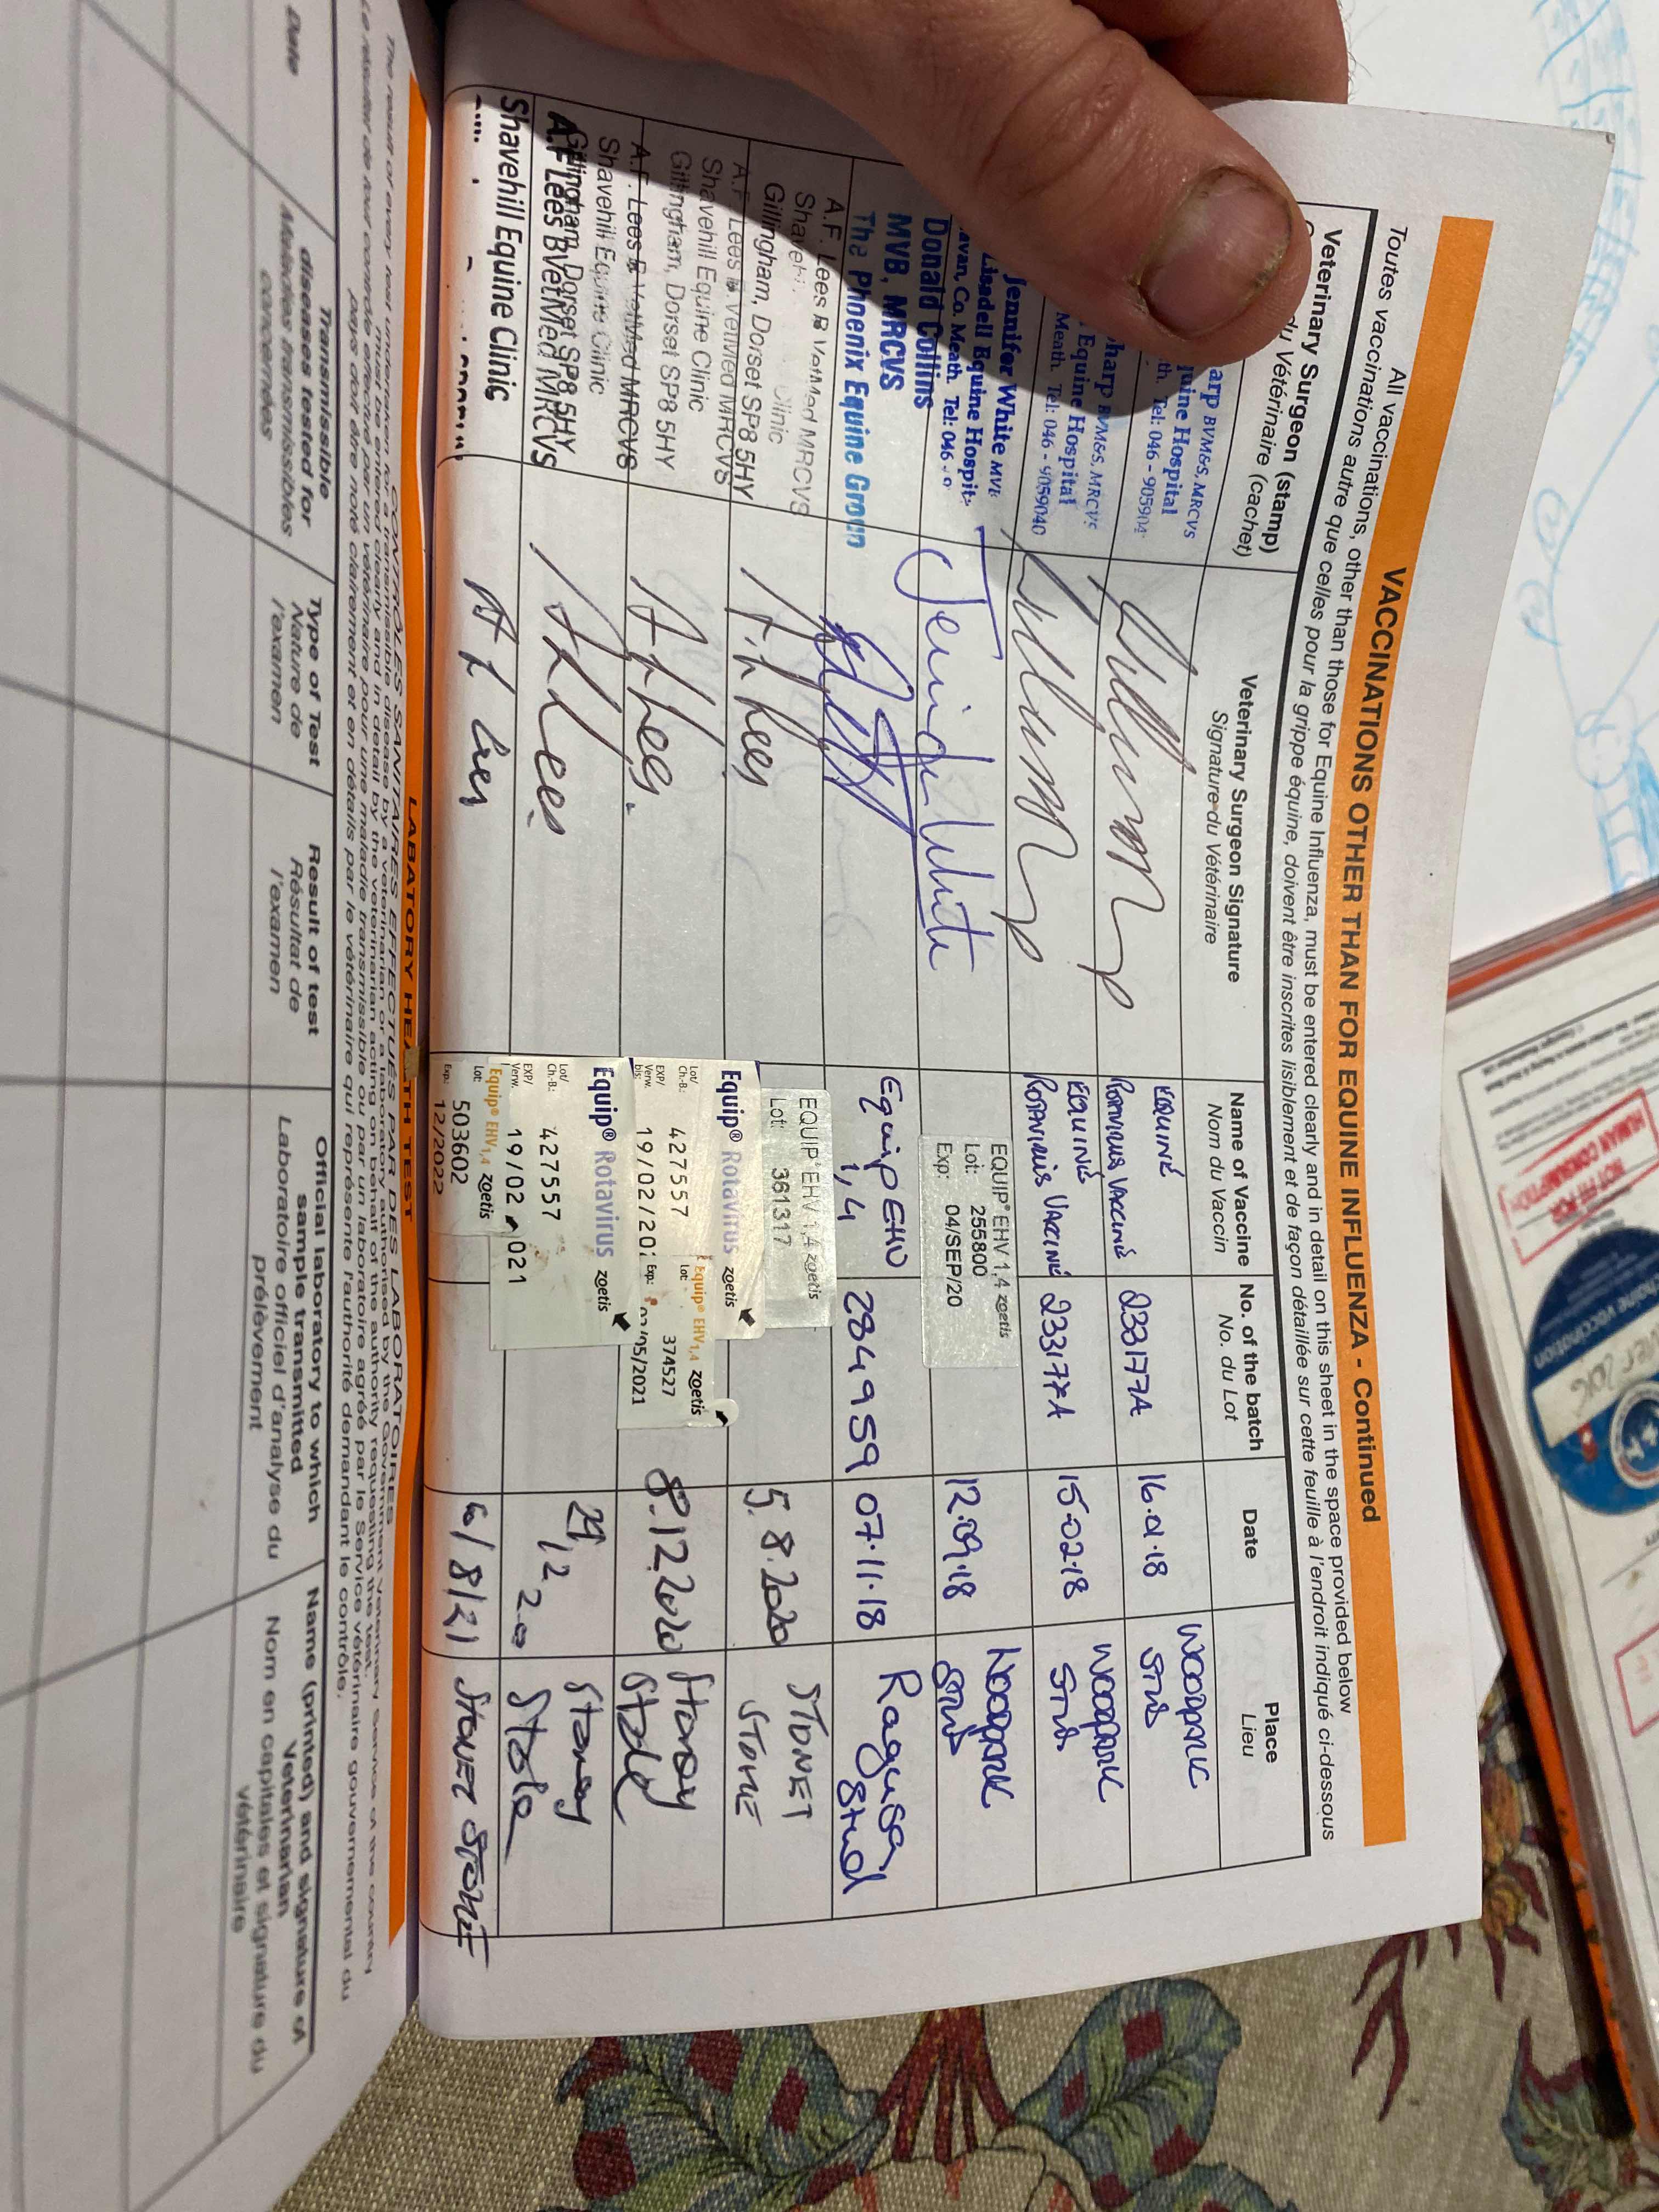 VACCINATIONS OTHER THAN FOR EQUINE INFLUENZA - Continued
All vaccinations, other than those for Equine Influenza, must be entered clearly and in detail on this sheet in the space provided below
Toutes vaccinations autre que celles pour la grippe équine, doivent être inscrites lisiblement et de façon détaillée sur cette feuille à l'endroit indiqué ci-dessous
Veterinary Surgeon (stamp)
du Vétérinaire (cachet)
Veterinary Surgeon Signature
Signature du Vétérinaire
Name of Vaccine
Nom du Vaccin
No. of the batch
No. du Lot
Date
Place
Lieu
arp BVM&S, MRCVS
quine Hospital
th. Tel: 046 - 905904
EQUINE
ROTAVIRUS VACCINE
233177A
16.01.18
WOODPARK
STUD
harp BVM&S, MRCVS
Equine Hospital
Meath. Tel: 046 - 9059040
EQUINE
ROTAVIRUS VACCINE
233177A
15.02.18
WOODPARK
STUD
Jennifer White MVB
Lisadell Equine Hospit
avan, Co. Meath. Tel: 046
Jennifer White
EQUIP® EHV 1,4 zoetis
Lot: 255800
Exp: 04/SEP/20
12.09.18
WOODPARK
STUD
Donald Collins
MVB, MRCVS
The Phoenix Equine Group
Equip EHV
1,4
284959
07.11.18
Ragusa
Stud
A.F. Lees BVetMed MRCVS
Shavehi Clinic
Gillingham, Dorset SP8 5HY
A.F. Lees
EQUIP® EHV 1,4 zoetis
Lot: 361317
5.8.2020
STONEY
STONE
A.F. Lees BVetMed MRCVS
Shavehill Equine Clinic
Gillingham, Dorset SP8 5HY
A. Lees
Equip® Rotavirus zoetis
Lot/
Ch.-B.: 427557
EXP/
Verw.
bis: 19/02/202
Equip® EHV1,4 zoetis
Lot: 374527
Exp: 05/2021
8.12.2020
Stoney
A.F. Lees BVetMed MRCVS
Shavehill Equine Clinic
Gillingham, Dorset SP8 5HY
A Lees
Equip® Rotavirus zoetis
Lot/
Ch.-B.: 427557
EXP/
Verw. 19/02 021
Stoney
A.F Lees BVetMed MRCVS
Shavehill Equine Clinic
A F Lees
Equip® EHV1,4 zoetis
Lot: 503602
Exp: 12/2022
6/8/21
STONEY STONE
LABATORY HEALTH TEST
CONTRÔLES SANITAIRES EFFECTUES PAR DES LABORATOIRES
The result of every test undertaken for a transmissible disease by a veterinarian or a laboratory authorised by the Government Veterinary Service of the country
must be entered clearly and in detail by the veterinarian acting on behalf of the authority requesting the test.
Le résultat de tout contrôle effectué par un vétérinaire pour une maladie transmissible ou par un laboratoire agréé par le Service vétérinaire gouvernemental du
pays doit être noté clairement et en détails par le vétérinaire qui représente l'autorité demandant le contrôle.
Date
Transmissible
diseases tested for
Maladies transmissibles
concernées
Type of Test
Nature de
l'examen
Result of test
Résultat de
l'examen
Official laboratory to which
sample transmitted
Laboratoire officiel d'analyse du
prélèvement
Name (printed) and signature of
Veterinarian
Nom en capitales et signature du
vétérinaire
NOT FIT FOR
HUMAN CONSUMPTION
vaccination